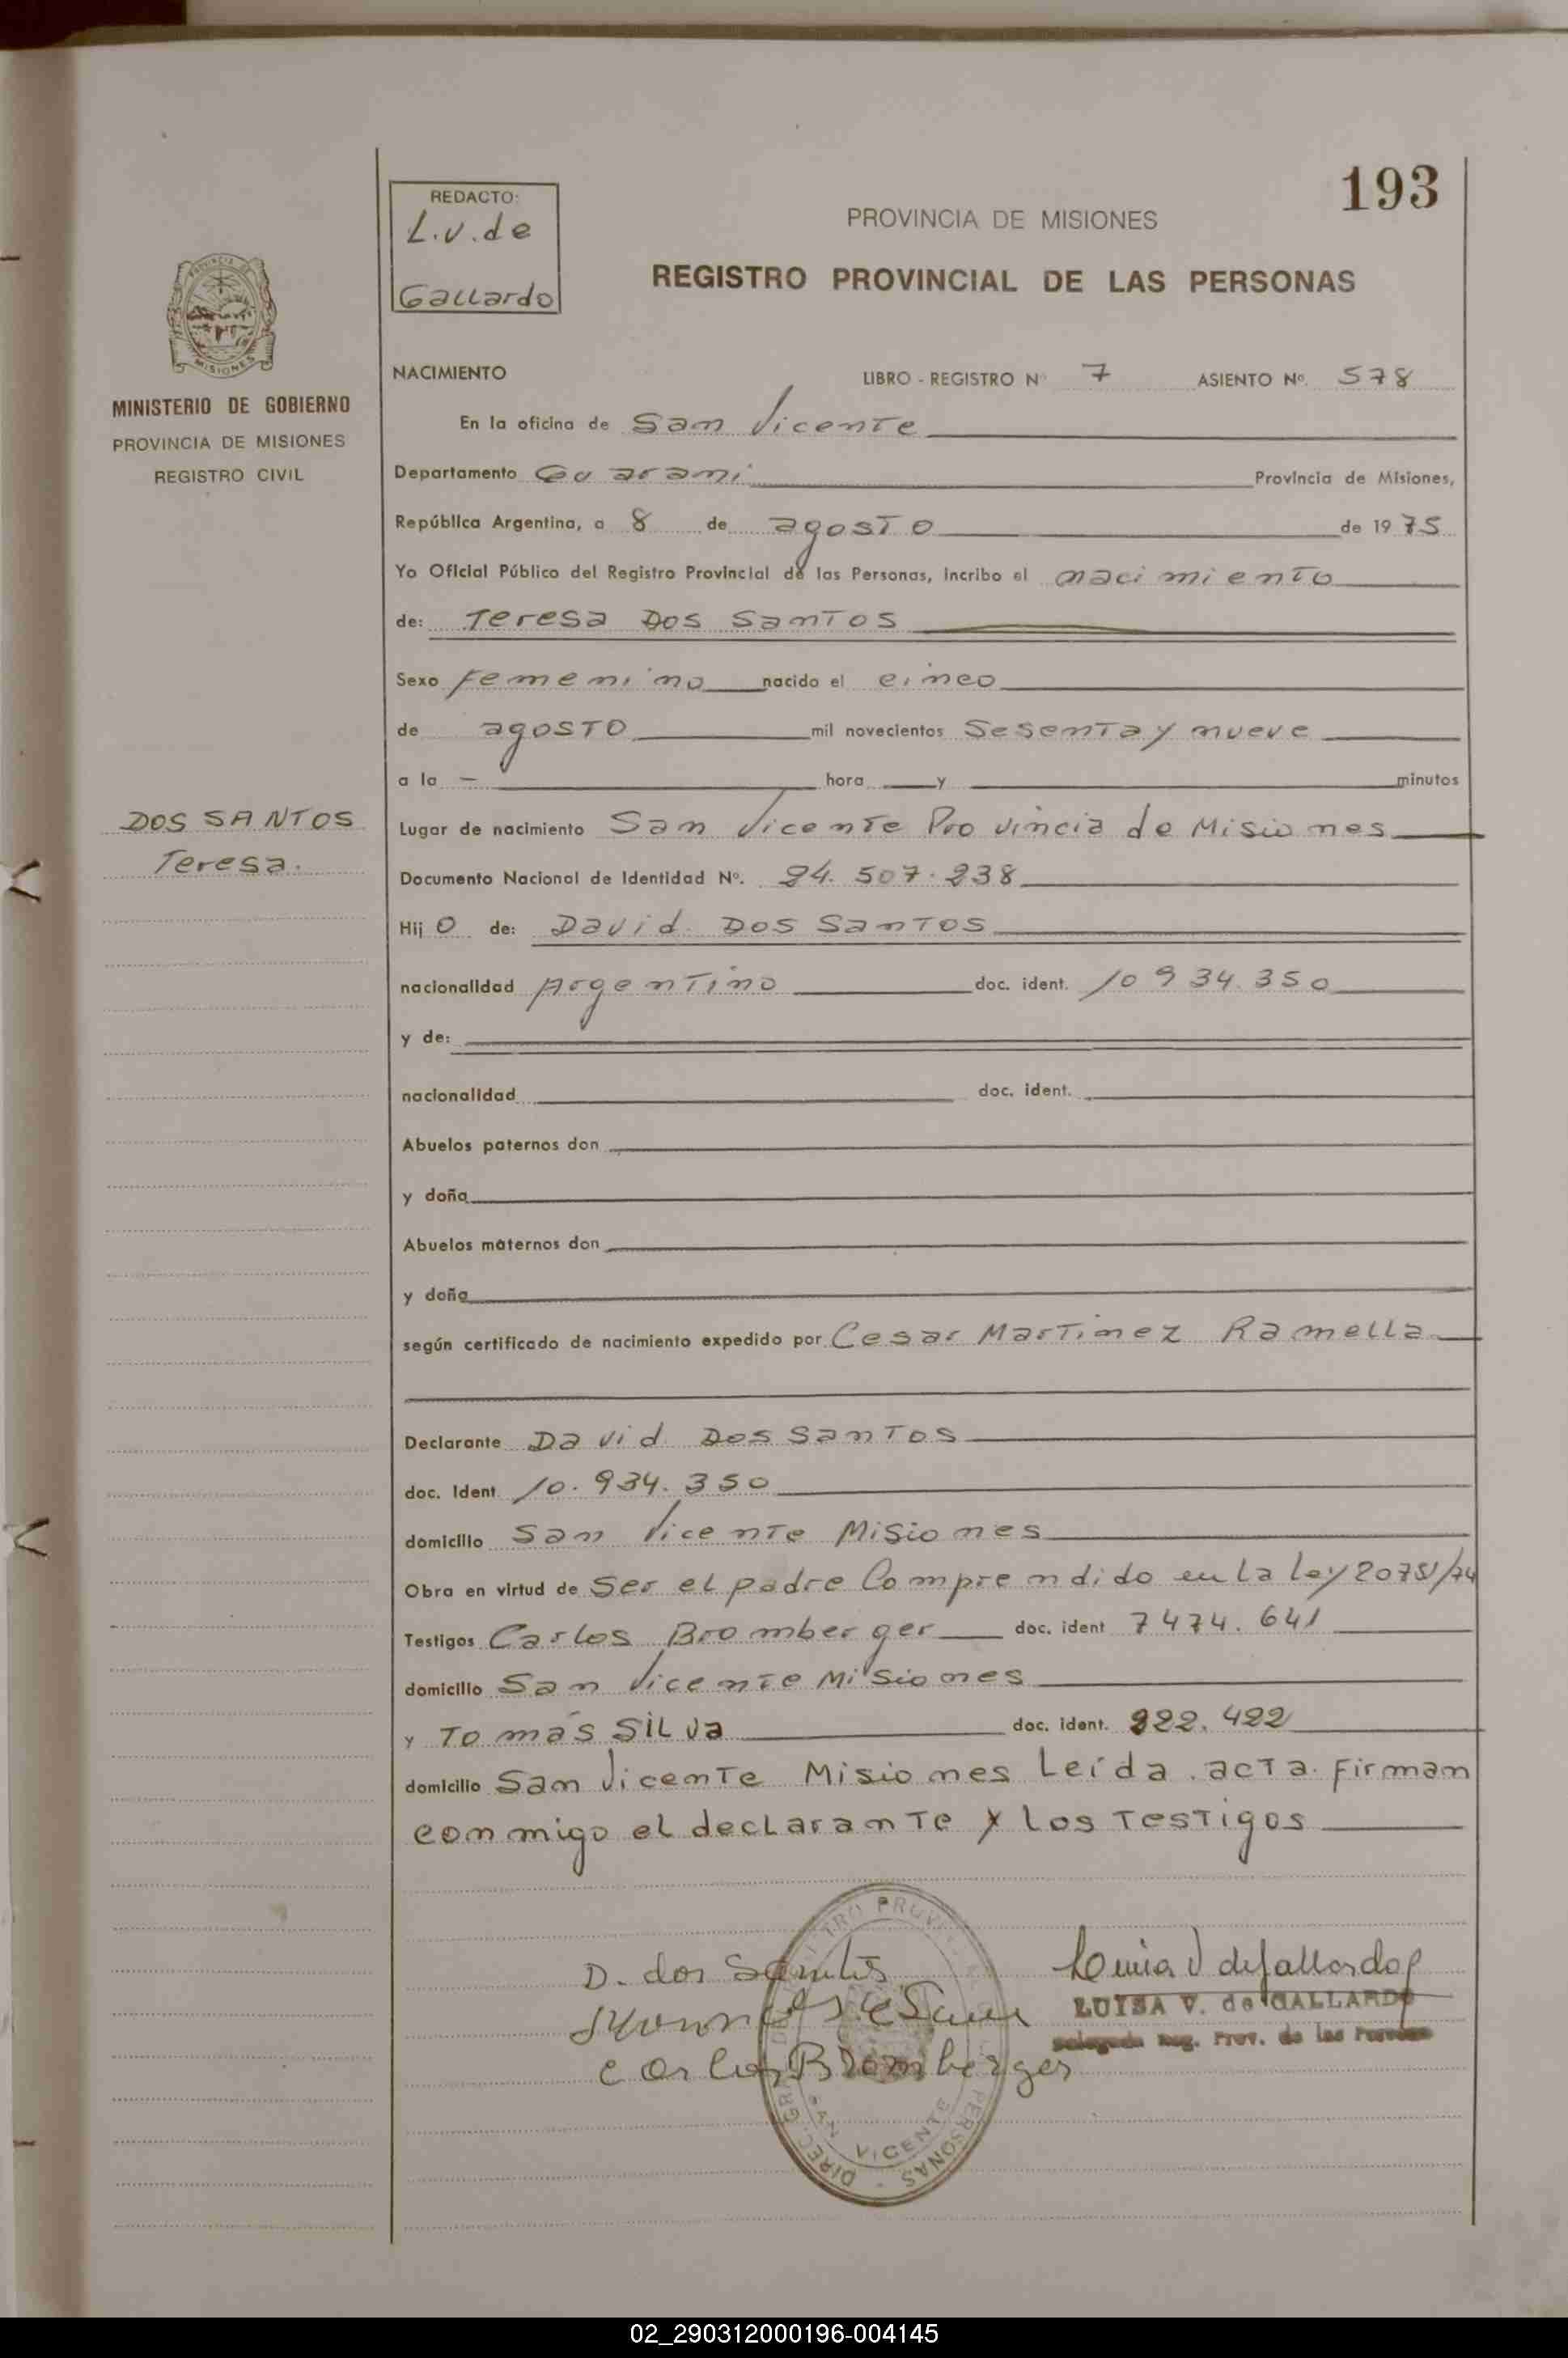 193
REDACTO:
L.v.de
Gallardo
PROVINCIA DE MISIONES
REGISTRO PROVINCIAL DE LAS PERSONAS
PROVINCIA DE
MISIONES
MINISTERIO DE GOBIERNO
PROVINCIA DE MISIONES
REGISTRO CIVIL
NACIMIENTO LIBRO - REGISTRO Nº 7 ASIENTO Nº. 578
En la oficina de San Vicente
Departamento Guarani Provincia de Misiones,
República Argentina, a 8 de agosto de 1975
Yo Oficial Público del Registro Provincial de las Personas, incribo el nacimiento
de: Teresa Dos Santos
Sexo femenino nacido el cinco
de agosto mil novecientos sesenta y nueve
a la — hora y minutos
DOS SANTOS
Teresa.
Lugar de nacimiento San Vicente Provincia de Misiones
Documento Nacional de Identidad Nº. 24.507.238
Hij o de: David Dos Santos
nacionalidad Argentino doc. ident. 10 934.350
y de:
nacionalidad doc. ident.
Abuelos paternos don
y doña
Abuelos maternos don
y doña
según certificado de nacimiento expedido por Cesar Martinez Ramella
Declarante David Dos Santos
doc. Ident 10.934.350
domicilio San Vicente Misiones
Obra en virtud de Ser el padre Comprendido en la ley 20751/74
Testigos Carlos Bromberger doc. ident 7474.641
domicilio San Vicente Misiones
y Tomás Silva doc. ident. 922.422
domicilio San Vicente Misiones Leída acta firman
conmigo el declarante y los testigos
D. dos Santos
Carlos Bromberger
LUISA V. de GALLARDO
Delegada Reg. Prov. de las Personas
SAN VICENTE
PERSONAS
DIREC. GRAL.
02_290312000196-004145